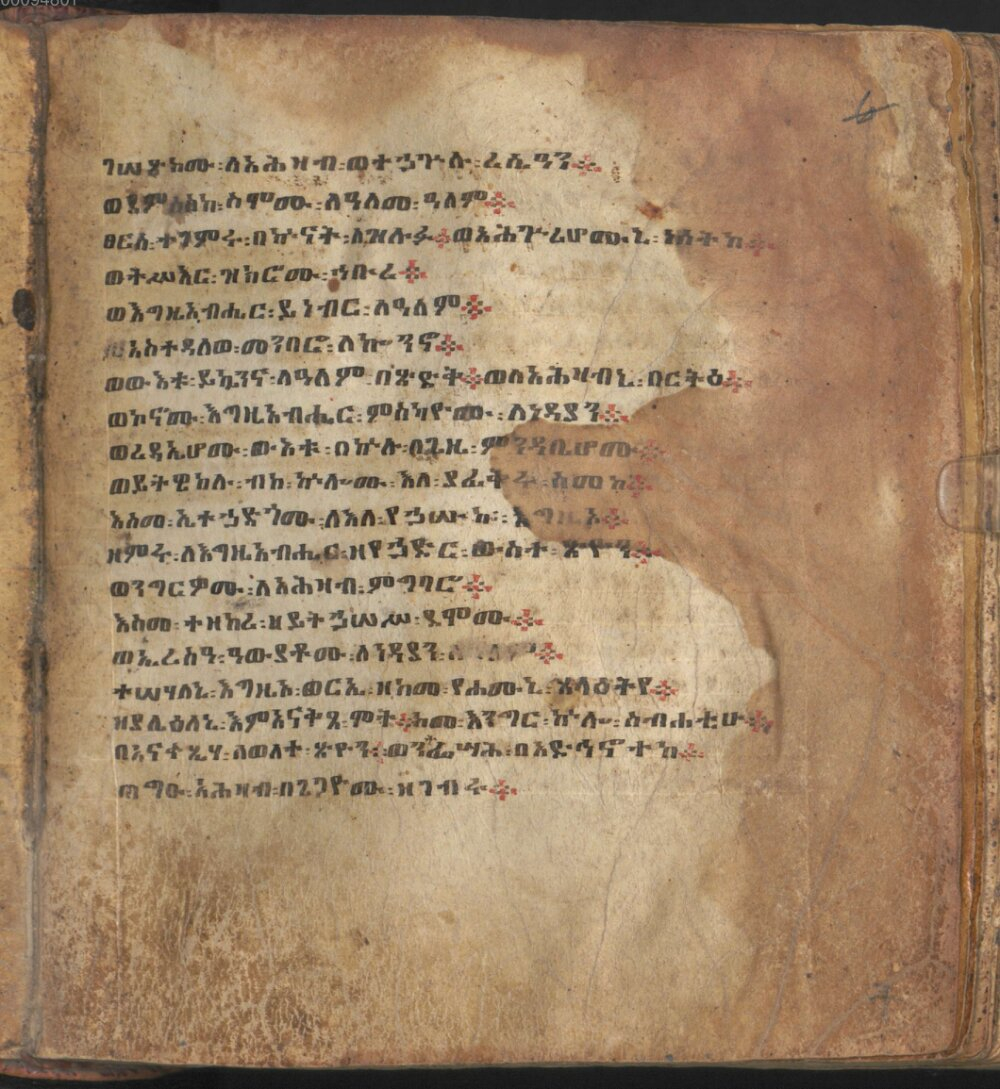 00094801
6
ገሠጽኮሙ፡ለአሕዛብ፡ወተኃጕሉ፡ረሲዓን፨
ወደምሰስከ፡ስሞሙ፡ለዓለመ፡ዓለም፨
ፀርሰ፡ተገምሩ፡በኵናት፡ለዝሉፉ፨ወአሕጕረሆሙኒ፡ነሠትከ፨
ወትሠአር፡ዝክሮሙ፡ኅቡረ፨
ወእግዚአብሔር፡ይነብር፡ለዓለም፨
ወአስተዳለወ፡መንበሮ፡ለኰንኖ፨
ወውእቱ፡ይኴንና፡ለዓለም፡በጽድቅ፨ወለአሕዛብኒ፡በርትዕ፨
ወኮኖሙ፡እግዚአብሔር፡ምስካዮሙ፡ለነዳያን፨
ወረዳኢሆሙ፡ውእቱ፡በኵሉ፡በጊዜ፡ምንዳቤሆሙ፨
ወይትዌከሉ፡ብከ፡ኵሎሙ፡እለ፡ያፈቅሩ፡ስመከ፨
እስመ፡ኢተኃድጎሙ፡ለእለ፡የኃሡከ፡እግዚኦ፨
ዘምሩ፡ለእግዚአብሔር፡ዘየኃድር፡ውስተ፡ጽዮን፨
ወንግርዎሙ፡ለአሕዛብ፡ምግባሮ፨
እስመ፡ተዘከረ፡ዘይትኃሠሥ፡ደሞሙ፨
ወኢረስዓ፡ዓውያቶሙ፡ለነዳያን፡
ተሣሃለኒ፡እግዚኦ፡ወርኢ፡ዘከመ፡የሐሙኒ፡ጸላዕትየ፨
ዘያሌዕለኒ፡እምአናቅጸ፡ሞት፨ከመ፡እንግር፡ኵሎ፡ስብሐቲሁ፨
በአናቅጺሃ፡ለወለተ፡ጽዮን፨ወንፌሣሕ፡በአድኅኖትከ፨
ጠግዑ፡አሕዛብ፡በጌጋዮሙ፡ዘገብሩ፨